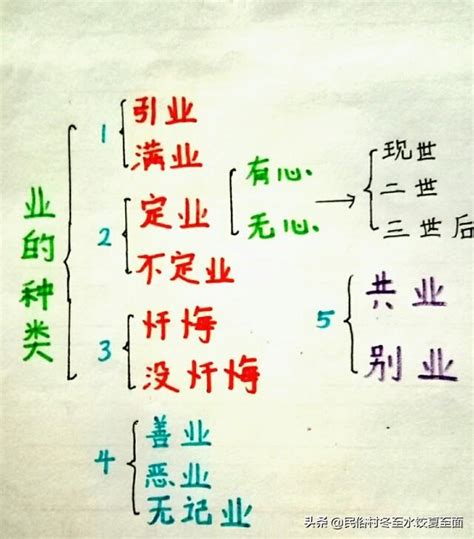 业的种类
1
引业
满业
2
定业
不定业
有心.
无心.
→
现世
二世
三世后
3
忏悔
没忏悔
4
善业
恶业
无记业
5
共业
别业
头条 @民俗村冬至水饺夏至面